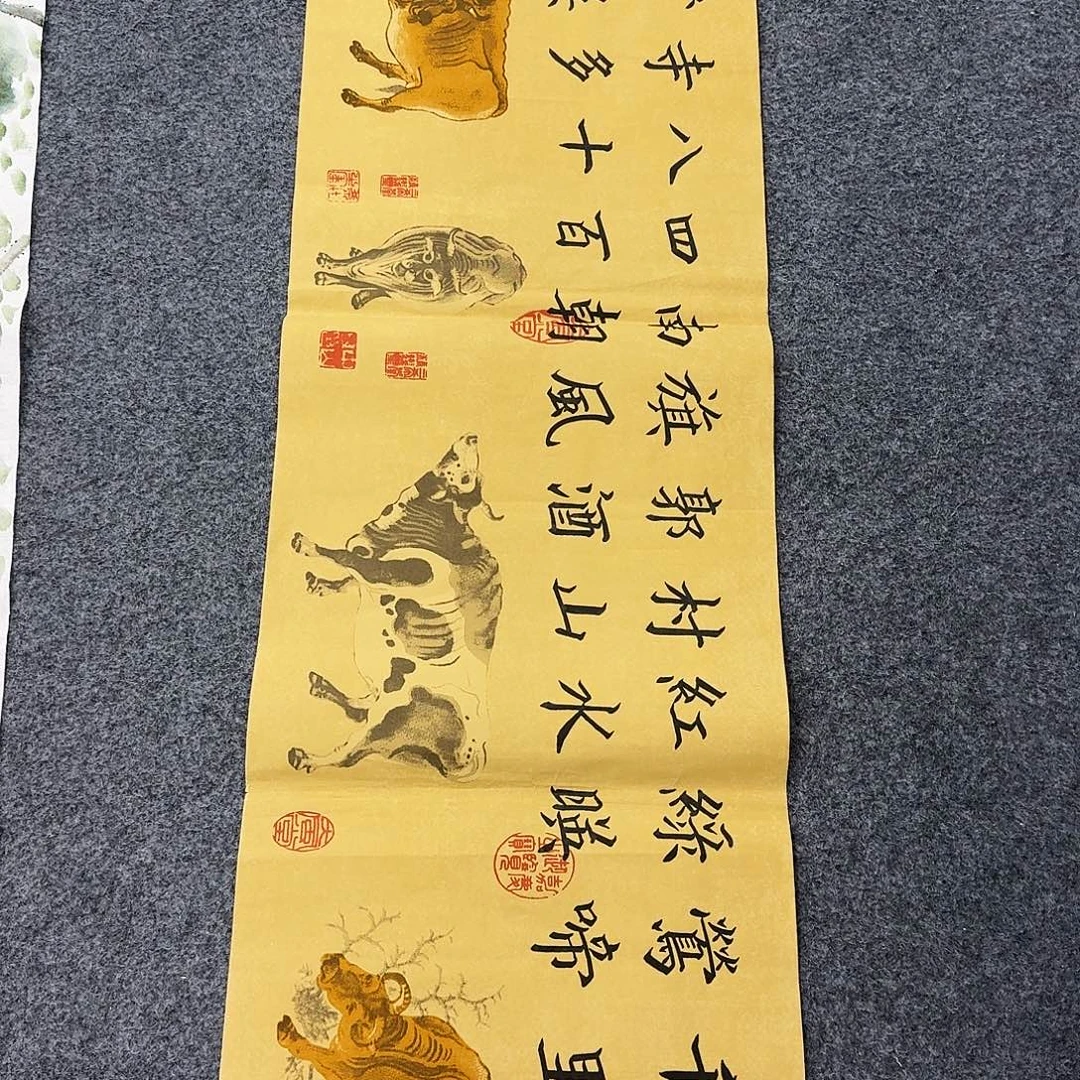 千里
鶯啼
綠暎
紅水
村山
郭酒
旗風
南朝
四百
八十
寺多